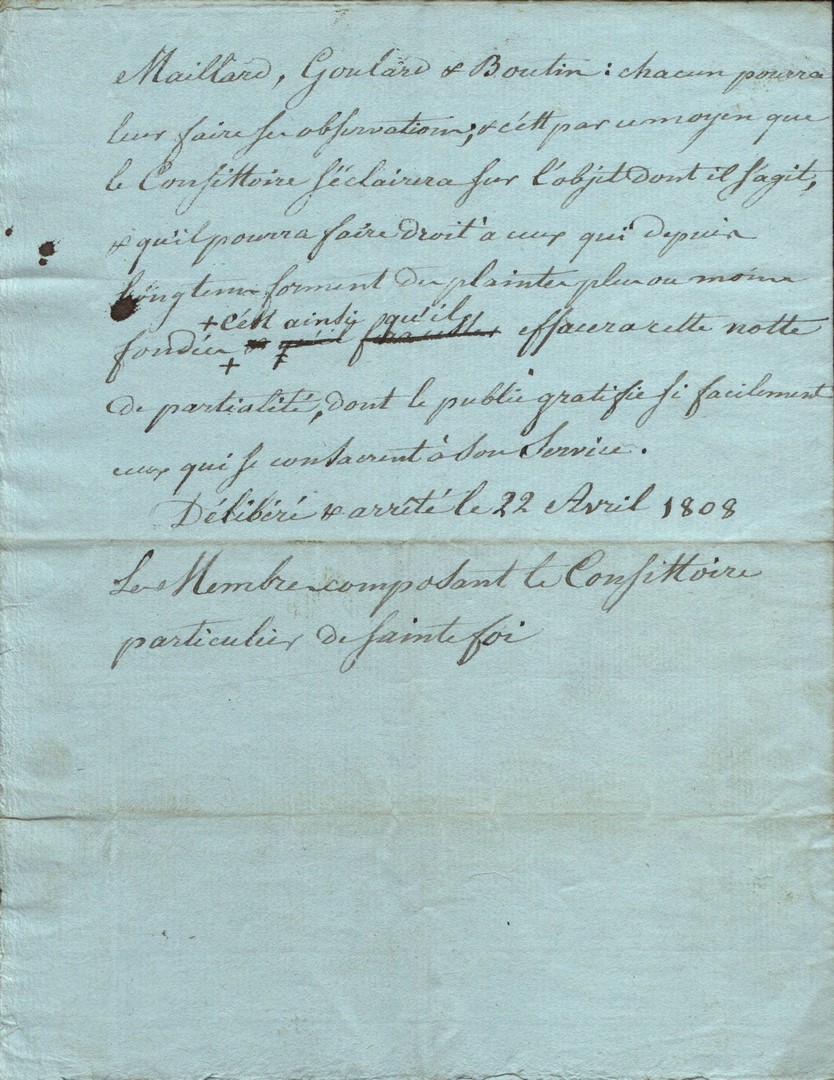 Maillard, Goulard & Boutin : chacun pourra
leur faire ses observations; & c'est par ce moyen que
le Consistoire s'éclairera sur l'objet dont il s'agit,
& qu'il pourra faire droit à ceux qui depuis
longtems forment des plaintes plus ou moins
+ c'est ainsi qu'il
fondées & qu'il effacera cette notte
+ +
de partialité, dont le public gratifie si facilement
ceux qui se consacrent à son Service.
Délibéré & arrêté le 22 Avril 1808
Les Membres composant le Consistoire
particulier de Sainte foi